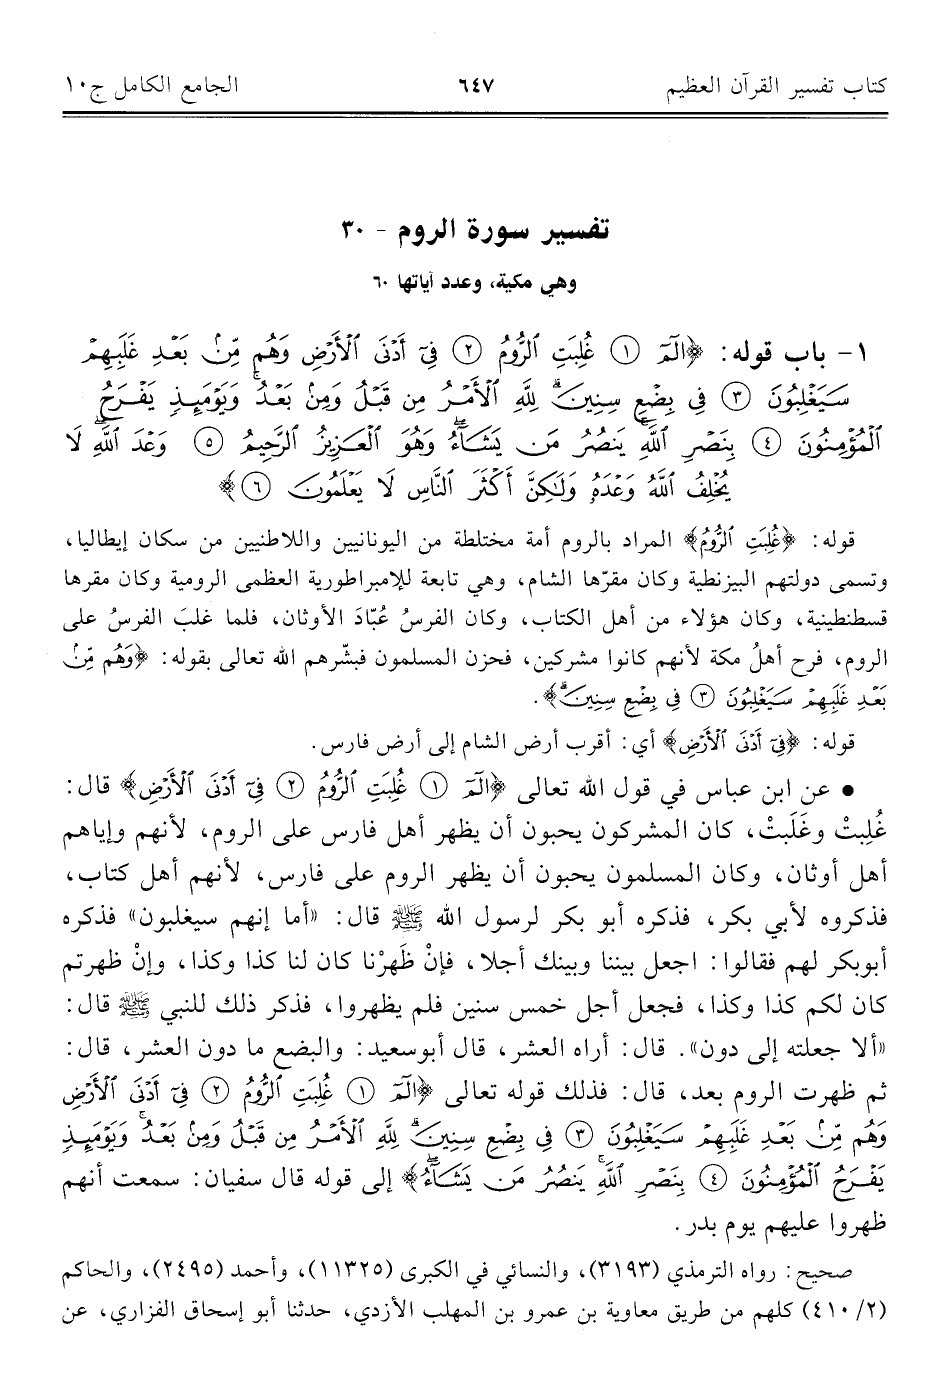 كتاب تفسير القرآن العظيم ٦٤٧ الجامع الكامل ج١٠
تفسير سورة الروم - ٣٠
وهي مكية، وعدد آياتها ٦٠
١- باب قوله: ﴿الٓمٓ ١ غُلِبَتِ ٱلرُّومُ ٢ فِىٓ أَدْنَى ٱلْأَرْضِ وَهُم مِّنۢ بَعْدِ غَلَبِهِمْ
سَيَغْلِبُونَ ٣ فِى بِضْعِ سِنِينَۗ لِلَّهِ ٱلْأَمْرُ مِن قَبْلُ وَمِنۢ بَعْدُۚ وَيَوْمَئِذٍ يَفْرَحُ
ٱلْمُؤْمِنُونَ ٤ بِنَصْرِ ٱللَّهِۚ يَنصُرُ مَن يَشَآءُۖ وَهُوَ ٱلْعَزِيزُ ٱلرَّحِيمُ ٥ وَعْدَ ٱللَّهِۖ لَا
يُخْلِفُ ٱللَّهُ وَعْدَهُۥ وَلَٰكِنَّ أَكْثَرَ ٱلنَّاسِ لَا يَعْلَمُونَ ٦﴾
قوله: ﴿غُلِبَتِ ٱلرُّومُ﴾ المراد بالروم أمة مختلطة من اليونانيين واللاطنيين من سكان إيطاليا،
وتسمى دولتهم البيزنطية وكان مقرّها الشام، وهي تابعة للإمبراطورية العظمى الرومية وكان مقرها
قسطنطينية، وكان هؤلاء من أهل الكتاب، وكان الفرسُ عُبّادَ الأوثان، فلما غلبَ الفرسُ على
الروم، فرح أهلُ مكة لأنهم كانوا مشركين، فحزن المسلمون فبشّرهم الله تعالى بقوله: ﴿وَهُم مِّنۢ
بَعْدِ غَلَبِهِمْ سَيَغْلِبُونَ ٣ فِى بِضْعِ سِنِينَۗ﴾.
قوله: ﴿فِىٓ أَدْنَى ٱلْأَرْضِ﴾ أي: أقرب أرض الشام إلى أرض فارس.
• عن ابن عباس في قول الله تعالى ﴿الٓمٓ ١ غُلِبَتِ ٱلرُّومُ ٢ فِىٓ أَدْنَى ٱلْأَرْضِ﴾ قال:
غُلِبتْ وغَلَبتْ، كان المشركون يحبون أن يظهر أهل فارس على الروم، لأنهم وإياهم
أهل أوثان، وكان المسلمون يحبون أن يظهر الروم على فارس، لأنهم أهل كتاب،
فذكروه لأبي بكر، فذكره أبو بكر لرسول الله ﷺ قال: «أما إنهم سيغلبون» فذكره
أبوبكر لهم فقالوا: اجعل بيننا وبينك أجلا، فإنْ ظَهرْنا كان لنا كذا وكذا، وإنْ ظهرتم
كان لكم كذا وكذا، فجعل أجل خمس سنين فلم يظهروا، فذكر ذلك للنبي ﷺ قال:
«ألا جعلته إلى دون». قال: أراه العشر، قال أبوسعيد: والبضع ما دون العشر، قال:
ثم ظهرت الروم بعد، قال: فذلك قوله تعالى ﴿الٓمٓ ١ غُلِبَتِ ٱلرُّومُ ٢ فِىٓ أَدْنَى ٱلْأَرْضِ
وَهُم مِّنۢ بَعْدِ غَلَبِهِمْ سَيَغْلِبُونَ ٣ فِى بِضْعِ سِنِينَۗ لِلَّهِ ٱلْأَمْرُ مِن قَبْلُ وَمِنۢ بَعْدُۚ وَيَوْمَئِذٍ
يَفْرَحُ ٱلْمُؤْمِنُونَ ٤ بِنَصْرِ ٱللَّهِۚ يَنصُرُ مَن يَشَآءُۖ﴾ إلى قوله قال سفيان: سمعت أنهم
ظهروا عليهم يوم بدر.
صحيح: رواه الترمذي (٣١٩٣)، والنسائي في الكبرى (١١٣٢٥)، وأحمد (٢٤٩٥)، والحاكم
(٤١٠/٢) كلهم من طريق معاوية بن عمرو بن المهلب الأزدي، حدثنا أبو إسحاق الفزاري، عن